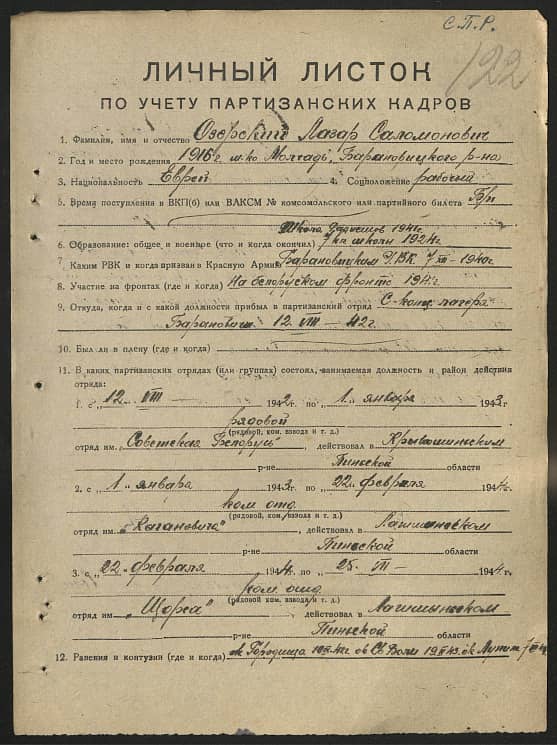 С.П.Р.
122
ЛИЧНЫЙ ЛИСТОК
ПО УЧЕТУ ПАРТИЗАНСКИХ КАДРОВ
1. Фамилия, имя и отчество Озерский Лазар Саломонович
2. Год и место рождения 1916 г. м-ко Молчадь, Барановицкого р-на
3. Национальность Еврей 4. Соцположение рабочий
5. Время поступления в ВКП(б) или ВЛКСМ № комсомольского или партийного билета Б/п
Школа 1941г.
6. Образование: общее и военное (что и когда окончил) 7 кл школы 1924г
7. Каким РВК и когда призван в Красную Армию Барановицким ГВК 1940г
8. Участие на фронтах (где и когда) На белоруском фронте 1941г.
9. Откуда, когда и с какой должности прибыл в партизанский отряд С конц. лагеря
Барановичи 12. VIII — 42 г.
10. Был ли в плену (где и когда)
11. В каких партизанских отрядах (или группах) состоял, занимаемая должность и район действия
отряда:
1. с „12 VIII — 1942 по „1 января 1943 г.
рядовой
(рядовой, ком. взвода и т. д.)
отряд им. „Советская Беларусь", действовал в
р-не Пинской области
2. с „1 января 1943 г. по „22 февраля 1944г.
ком. отд.
(рядовой, ком. взвода и т. д.)
отряд им. „Кагановича", действовал в
р-не Пинской области
3. с „22 февраля 1944 г. по „25 VII — 1944 г.
ком. отд.
(рядовой, ком. взвода и т. д.)
отряд им „Щорса" действовал в
р-не Пинской области
12. Ранения и контузии (где и когда) ок Городища